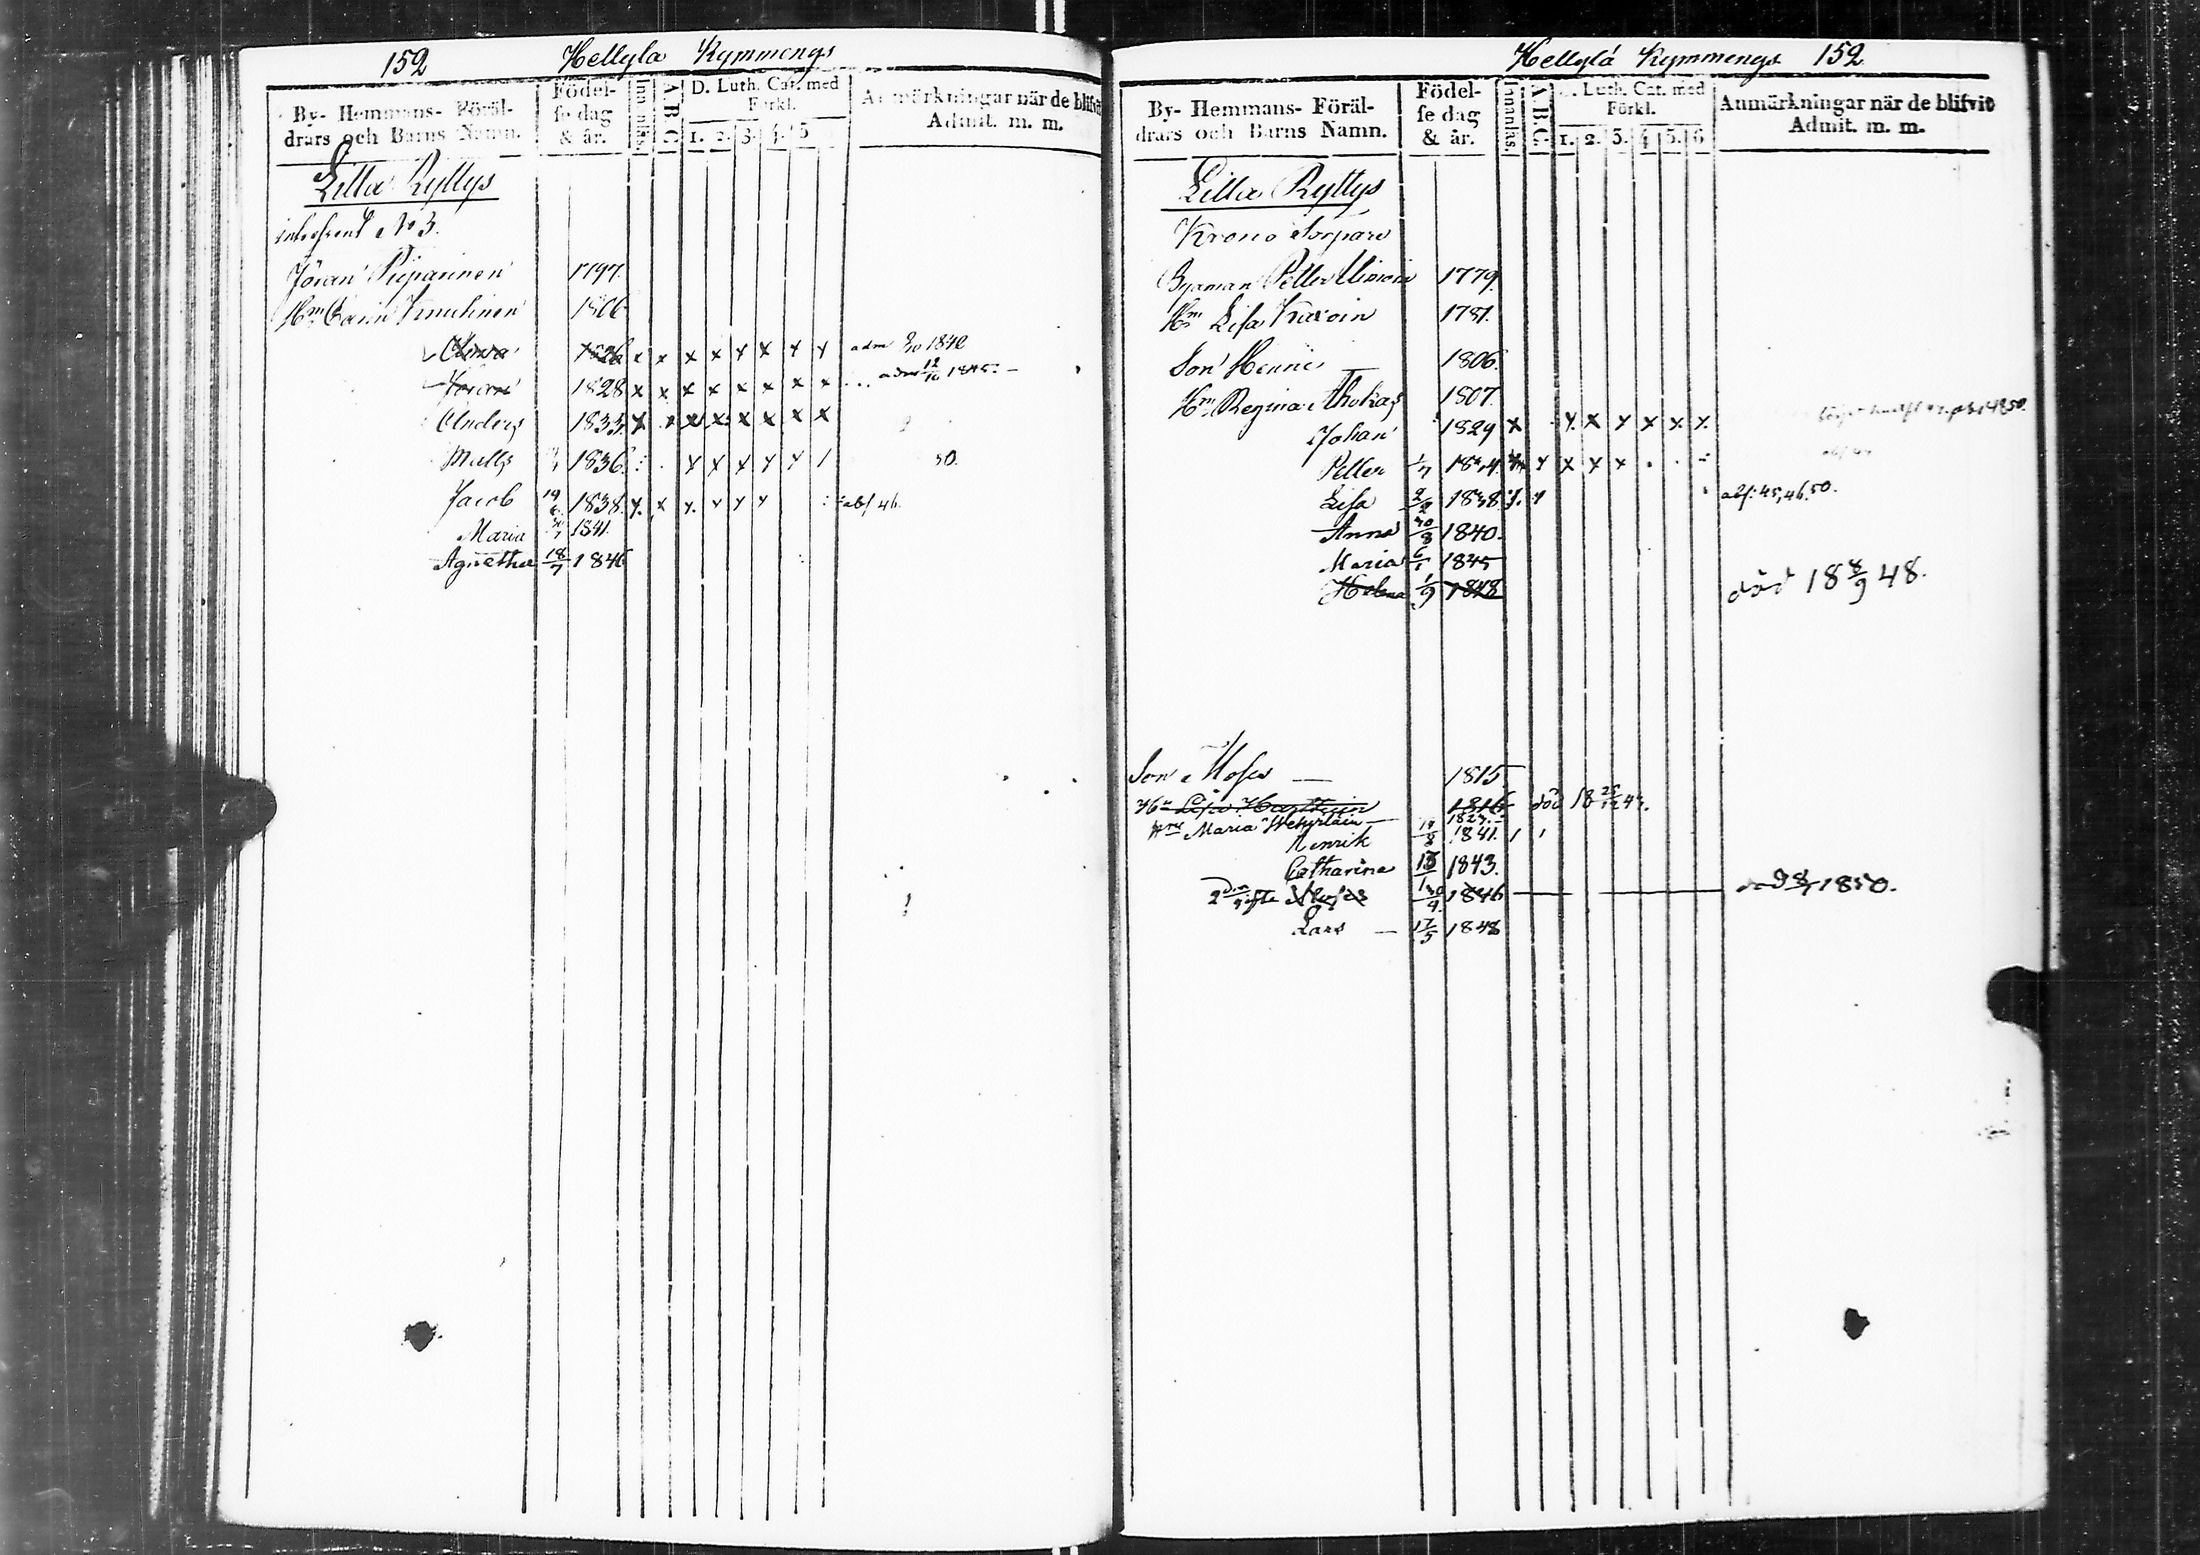 152 Hellyla Kymmenys
By- Hemmans- Föräl-
drars och Barns Namn.
Födel-
se dag
& år.
Innanläs.
A B C.
D. Luth. Cat. med
Förkl.
1. 2. 3. 4. 5
Anmärkningar när de blifvit
Admit. m. m.
Lilla Ryttys
No 3.
Jöran Piiparinen 1797.
Hm Carin 1806
1826 x x x x x x x x adm 1842
Jöran 1828 x x x x x x x x adm 12/10 1845.
Anders 1833 x x x x x x x x
Matts 1836. x x x x x / 50.
Jacob 1838. x. x x. x x x abs 46.
Maria 1841.
Agnetha 18/7 1846
Hellylä Kymmenys 152
By- Hemmans- Föräl-
drars och Barns Namn.
Födel-
se dag
& år.
Innanläs.
A B C.
D. Luth. Cat. med
Förkl.
1. 2. 3. 4 5. 6
Anmärkningar när de blifvit
Admit. m. m.
Lilla Ryttys
Krono Torpare
Petter 1779.
Hm Lisa Karoin 1781.
Son Henric 1806.
Hm Regina Ahokas 1807.
Johan 1829 x x x x x x x.
Petter x x x x
Lisa 1838 abs: 45, 46. 50.
Anna 30/8 1840.
Maria 6/1 1845
Helena 1/9 1848 död 18 8/9 48.
Son Moses — 1815
Hu Lisa 1816 död 18
Hru Maria
Henrik 1841. / /
Catharina 1843.
1846 1850.
Lars — 17/5 1848